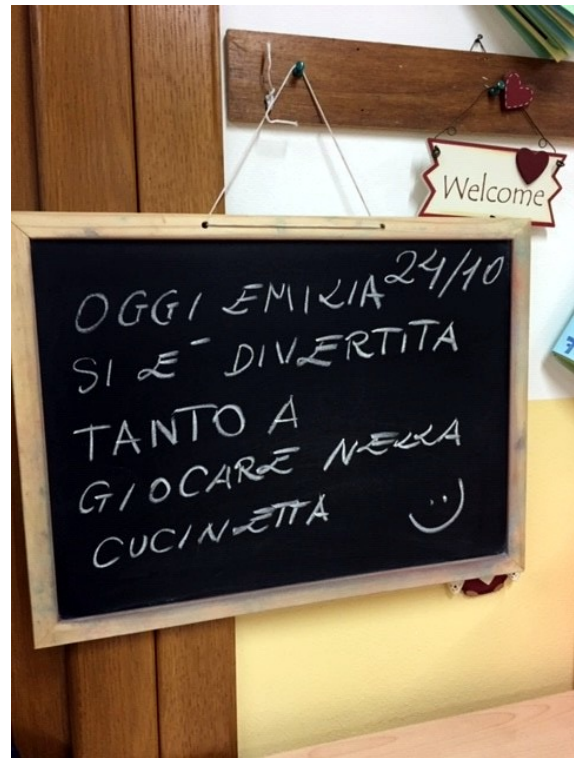 Welcome
OGGI EMILIA 24/10
SI E' DIVERTITA
TANTO A
GIOCARE NELLA
CUCINETTA